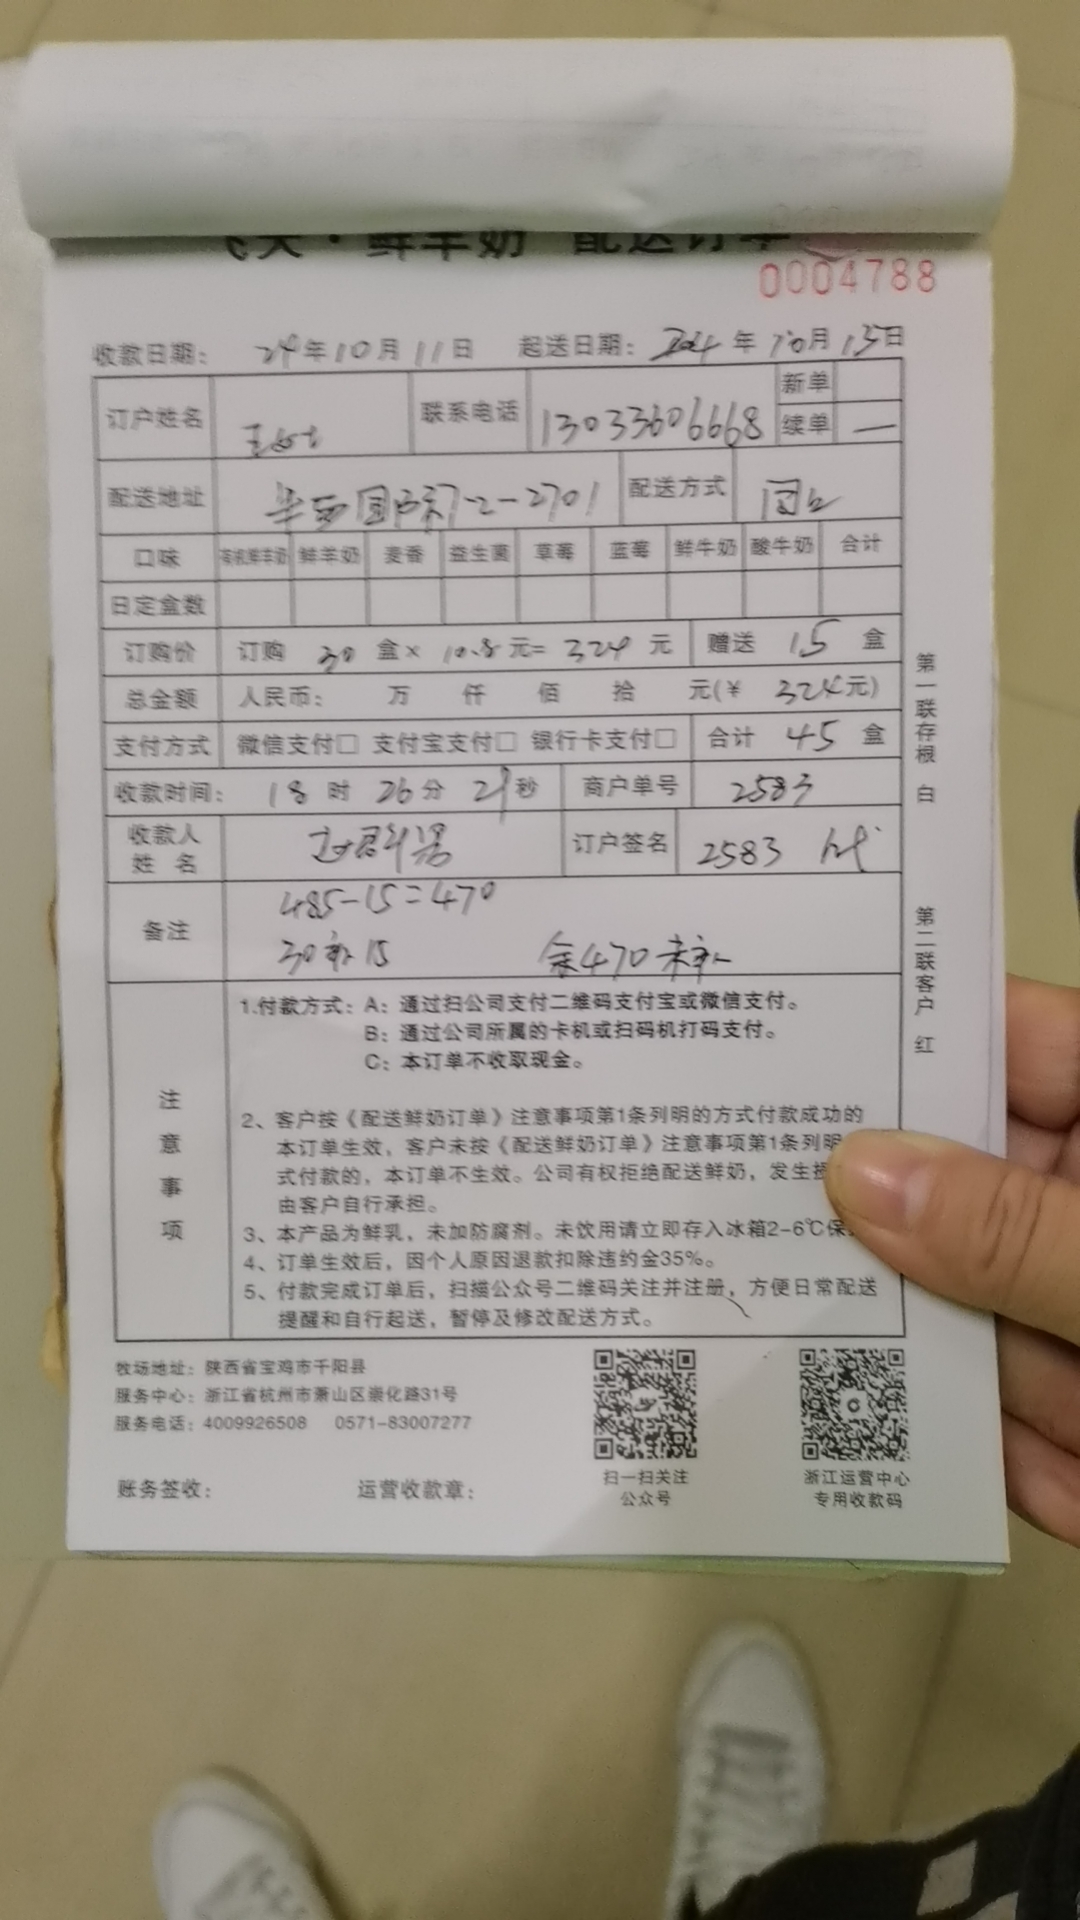 飞天·鲜羊奶 配送订单
0004788
收款日期: 24年10月11日 起送日期: 2024年10月15日
订户姓名 王女士 联系电话 13033606668 新单
续单 —
配送地址 2-2701 配送方式
口味 鲜羊奶 麦香 益生菌 草莓 蓝莓 鲜牛奶 酸牛奶 合计
日定盒数
订购价 订购 30 盒× 10.8 元= 324 元 赠送 15 盒
总金额 人民币: 万 仟 佰 拾 元(¥ 324元)
支付方式 微信支付□ 支付宝支付□ 银行卡支付□ 合计 45 盒
收款时间: 18时26分29秒 商户单号 2583
收款人
姓 名
订户签名 2583 代
备注 485-15=470
30补15 余470未补
注意事项
1.付款方式: A: 通过扫公司支付二维码支付宝或微信支付。
B: 通过公司所属的卡机或扫码机打码支付。
C: 本订单不收取现金。
2、客户按《配送鲜奶订单》注意事项第1条列明的方式付款成功的
本订单生效，客户未按《配送鲜奶订单》注意事项第1条列明
式付款的，本订单不生效。公司有权拒绝配送鲜奶，发生
由客户自行承担。
3、本产品为鲜乳，未加防腐剂。未饮用请立即存入冰箱2-6℃保
4、订单生效后，因个人原因退款扣除违约金35%。
5、付款完成订单后，扫描公众号二维码关注并注册，方便日常配送
提醒和自行起送，暂停及修改配送方式。
第一联存根 白
第二联客户 红
牧场地址: 陕西省宝鸡市千阳县
服务中心: 浙江省杭州市萧山区崇化路31号
服务电话: 4009926508 0571-83007277
扫一扫关注
公众号
浙江运营中心
专用收款码
账务签收: 运营收款章: